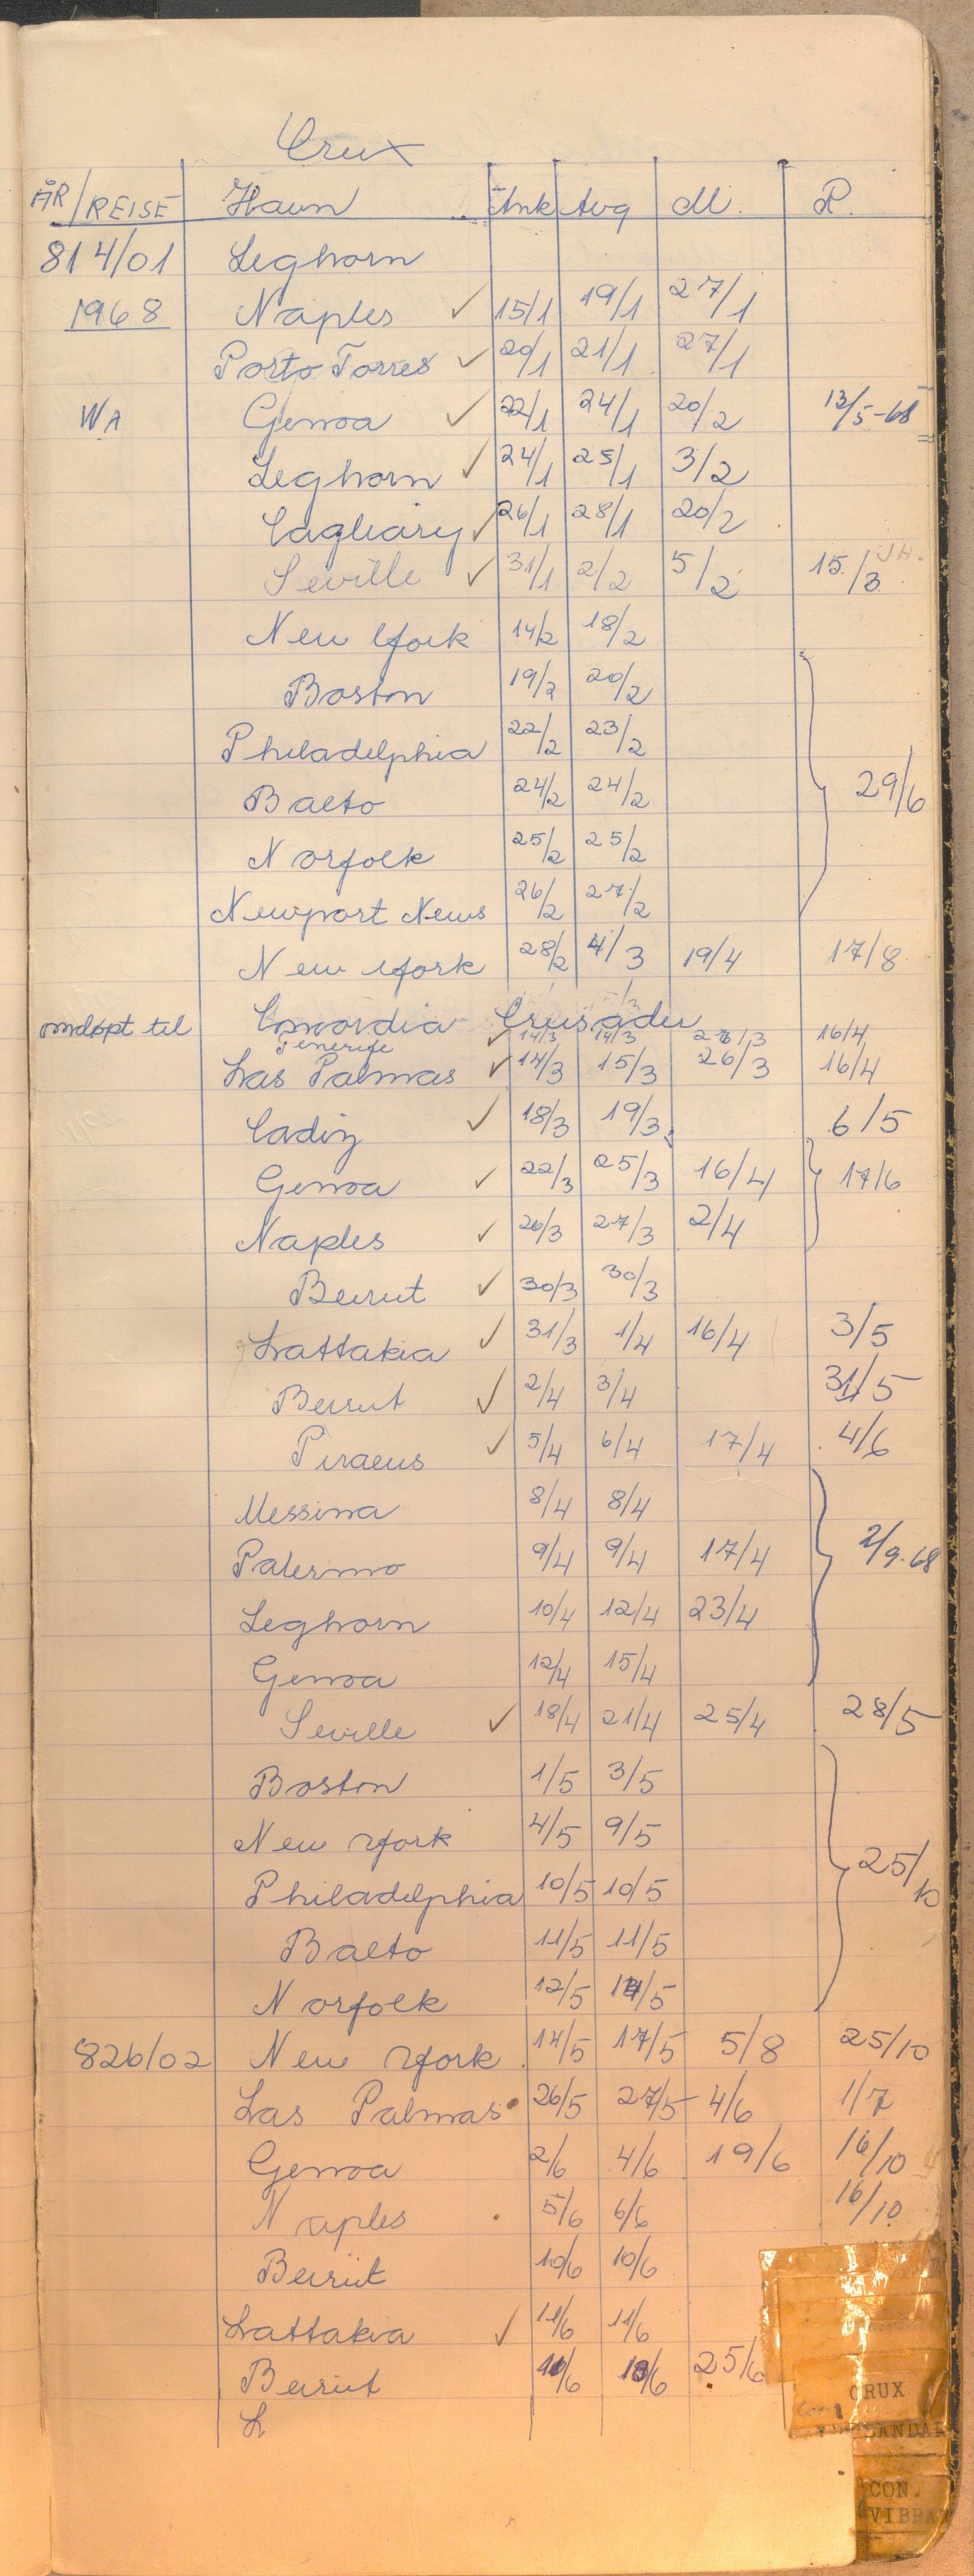 Crux
ÅR/REISE Havn Ank Avg M. R.
814/01 Leghorn
1968 Naples ✓ 15/1 19/1 27/1
Porto Torres ✓ 20/1 21/1 27/1
WA Genoa ✓ 22/1 24/1 20/2 13/5-68
Leghorn ✓ 24/1 25/1 3/2
Cagliary ✓ 26/1 28/1 20/2
Seville ✓ 31/1 2/2 5/2 15./3
New York 14/2 18/2
Boston 19/2 20/2
Philadelphia 22/2 23/2
Balto 24/2 24/2 29/6
Norfolk 25/2 25/2
Newport News 26/2 27/2
New York 28/2 4/3 19/4 17/8
omdøpt til Concordia Crusader
Tenerife ✓ 14/3 14/3 26/3 16/4
Las Palmas ✓ 14/3 15/3 26/3 16/4
Cadiz ✓ 18/3 19/3 6/5
Genoa ✓ 22/3 25/3 16/4 17/6
Naples ✓ 26/3 27/3 2/4
Beirut ✓ 30/3 30/3
Lattakia ✓ 31/3 1/4 16/4 3/5
Beirut ✓ 2/4 3/4 31/5
Piraeus ✓ 5/4 6/4 17/4 4/6
Messina 8/4 8/4
Palermo 9/4 9/4 17/4 2/9-68
Leghorn 10/4 12/4 23/4
Genoa 12/4 15/4
Seville ✓ 18/4 21/4 25/4 28/5
Boston 1/5 3/5
New York 4/5 9/5
Philadelphia 10/5 10/5 25/10
Balto 11/5 11/5
Norfolk 12/5
826/02 New York 14/5 17/5 5/8 25/10
Las Palmas 26/5 27/5 4/6 1/7
Genoa 2/6 4/6 19/6 16/10
Naples 5/6 6/6 16/10
Beirut 10/6 10/6
Lattakia ✓ 11/6 11/6
Beirut 25/6
L
CRUX
CON.